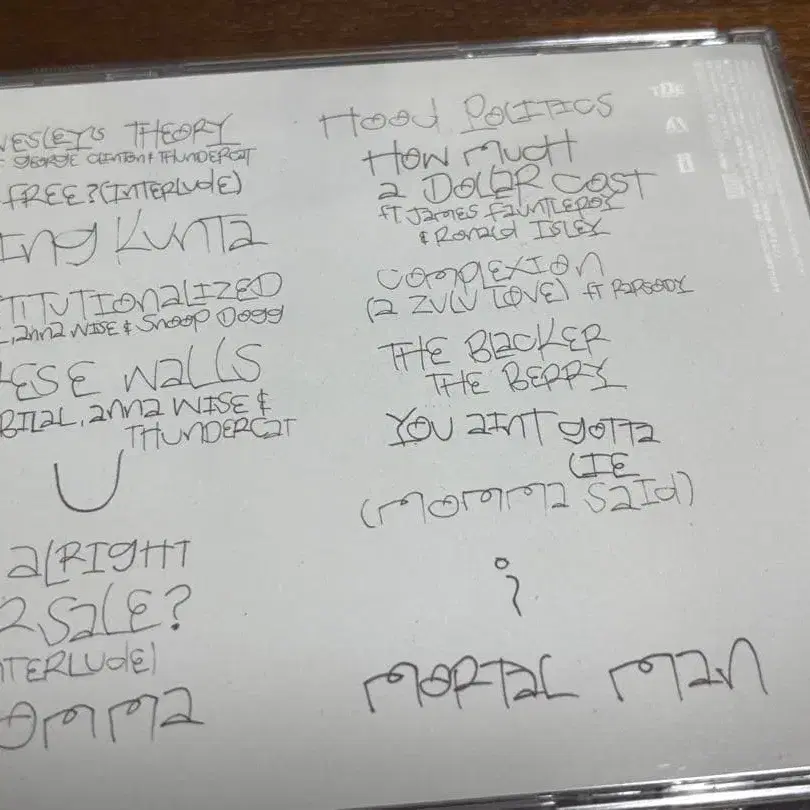 WESLEY'S THEORY
GEORGE CLINTON & THUNDERCAT
FREE? (INTERLUDE)
ING KUNTA
TITUTIONALIZED
, ANNA WISE & SNOOP DOGG
ESE WALLS
BILAL, ANNA WISE &
THUNDERCAT
U
ALRIGHT
2 SALE?
NTERLUDE)
OMMA
HOOD POLITICS
HOW MUCH
A DOLLAR COST
FT JAMES FAUNTLEROY
& RONALD ISLEY
COMPLEXION
(A ZULU LOVE) FT RAPSODY
THE BLACKER
THE BERRY
YOU AINT GOTTA
LIE
(MOMMA SAID)
i
MORTAL MAN
TDE